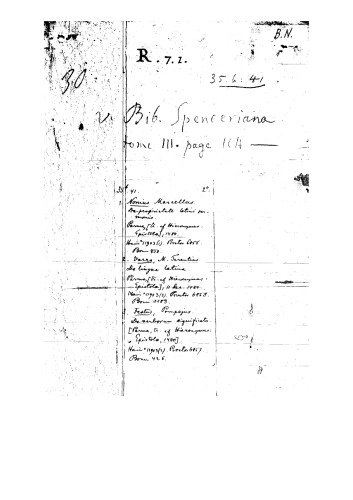 B.N.
R.7.1.
30.
35.6.41
v. Bib. Spenceriana
tome III. page 164 —
41. 2°.
1. Nonius Marcellus.
De proprietate latini sermonis.
Parma, [Pr. of Hieronymus.
Epistola], 1480.
Hain *11903(1). Proctor 6856.
2. Varro, M. Terentius
De lingua latina
Parma [Pr. of Hieronymus.
Epistola], 11 Dec. 1480.
Hain *11903(2). Proctor 6858.
3. Festus, Pompeius.
De verborum significatu
[Parma, Pr. of Hieronymus.
Epistola, 1480]
Hain *11903(3). Proctor 6857.